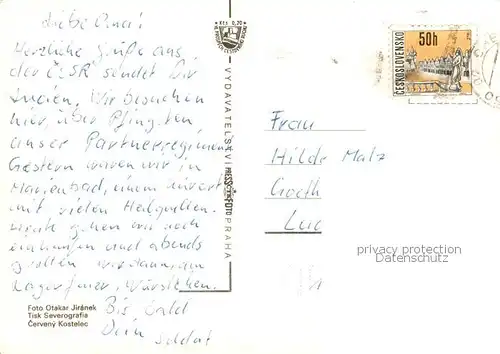 Liebe Oma!
Herzliche Grüße aus
der ČSSR sendet Dir
Lucien. Wir besuchen
hier, über Pfingsten
unser Partnerregiment
Gestern waren wir in
Marienbad, einem Kurort
mit vielen Heilquellen.
Heute gehen wir noch
einkaufen und abends
grillen wir dann, am
Lagerfeuer, Würstchen.
Bis bald
Dein
Soldat
Foto Otakar Jiránek
Tisk Severografia
Červený Kostelec
Kčs 0,70
VYDAVATELSTVÍ PRESSFOTO PRAHA
ČESKOSLOVENSKO
50h
Frau
Hilde Malz
Goeth
Luc
privacy protection
Datenschutz